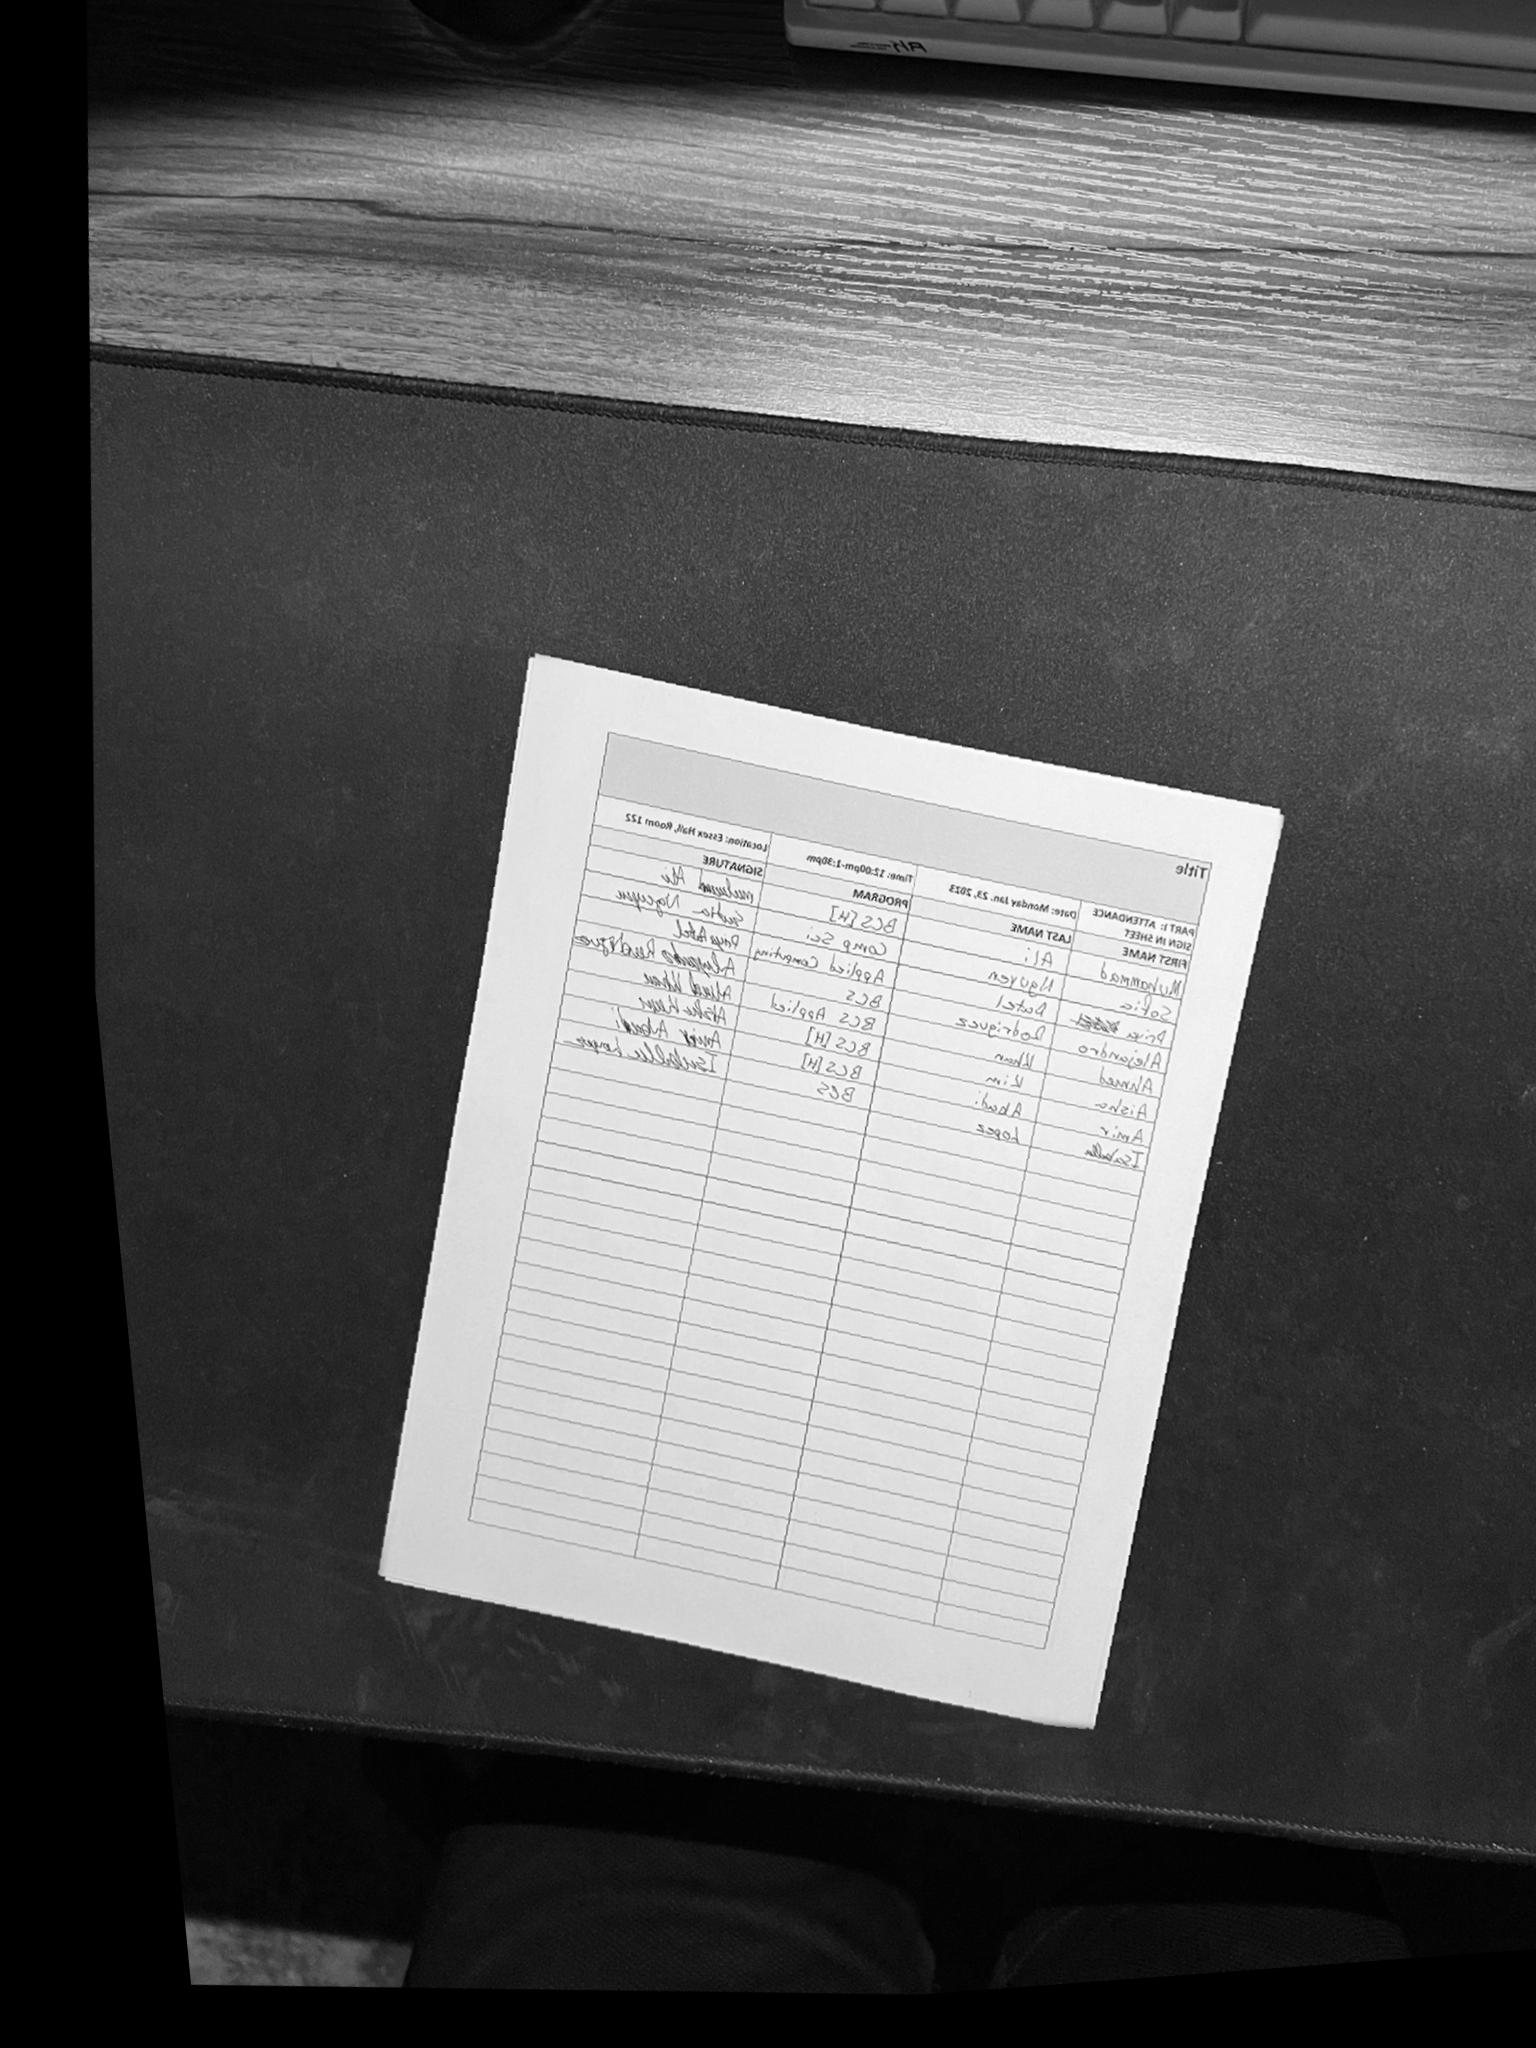 Title
PART1: ATTENDANCE SIGN IN SHEET Date: Monday Jan. 23, 2023 Time: 12:00pm-1:30pm Location: Essex Hall, Room 122
FIRST NAME LAST NAME PROGRAM SIGNATURE
Muhammad Ali BCS[H] Ali
Sofia Nguyen Comp Sci Nguyen
Priya Patel Applied Computing
Alejandro Rodriguez BCS Alejandro Rodriguez
Ahmed Khan BCS Applied Ahmed Khan
Aisha Kim BCS[H]
Amir Abadi BCS[H] Amir Abadi
Isabella Lopez BCS Isabella Lopez